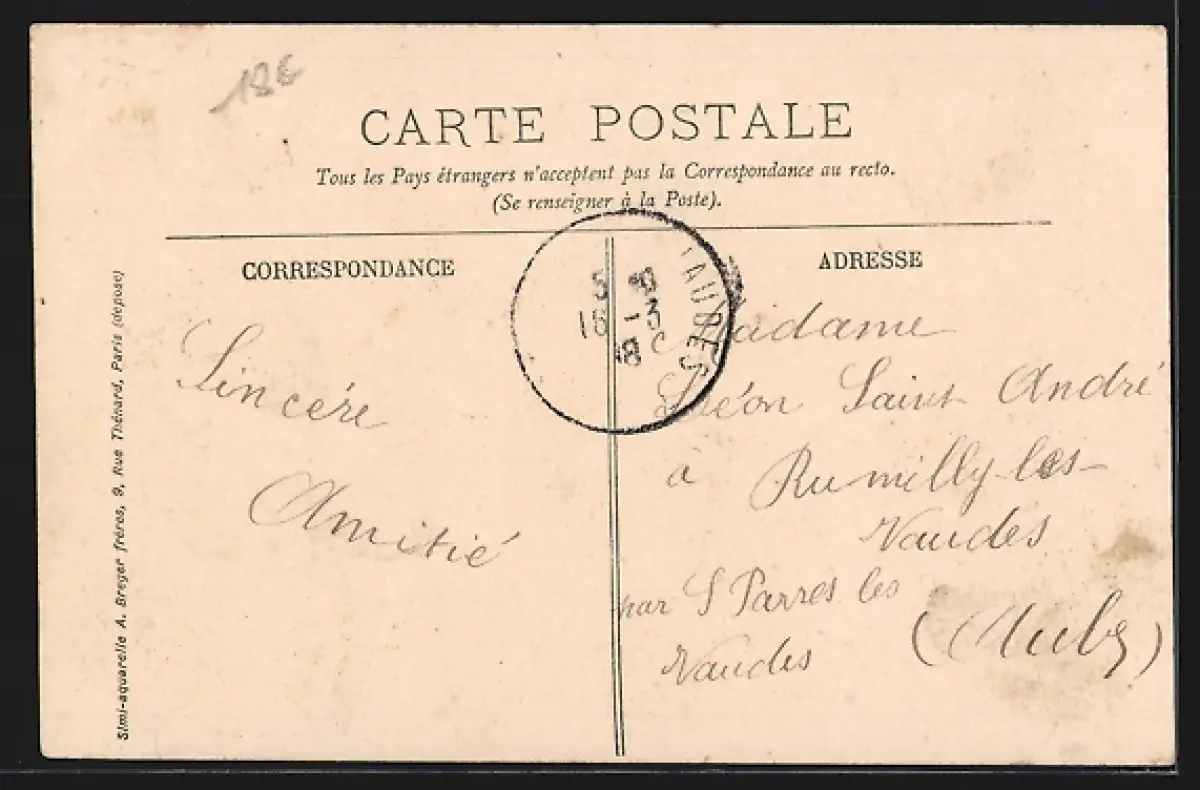 18€
CARTE POSTALE
Tous les Pays étrangers n'acceptent pas la Correspondance au recto.
(Se renseigner à la Poste).
CORRESPONDANCE
Sincère
Amitié
ADRESSE
Madame
Léon Saint André
à Rumilly-les-
Vaudes
par S Parres les
Vaudes
(Aube)
16 -3
08
VAUDES
Simi-aquarelle A. Breger frères, 9, Rue Thénard, Paris (déposé)